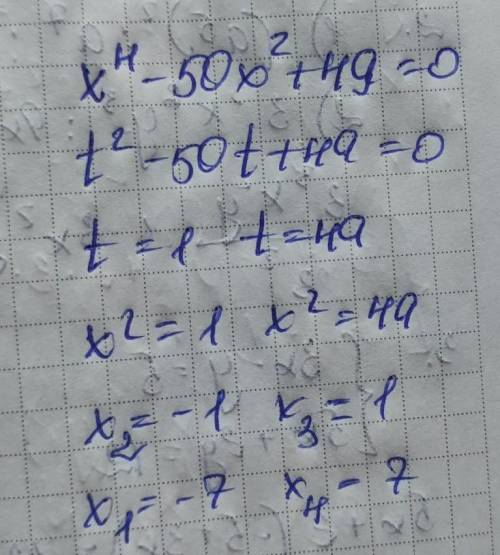 x⁴ - 50x² + 49 = 0
t² - 50t + 49 = 0
t = 1 t = 49
x² = 1 x² = 49
x₂ = -1 x₃ = 1
x₁ = -7 x₄ - 7